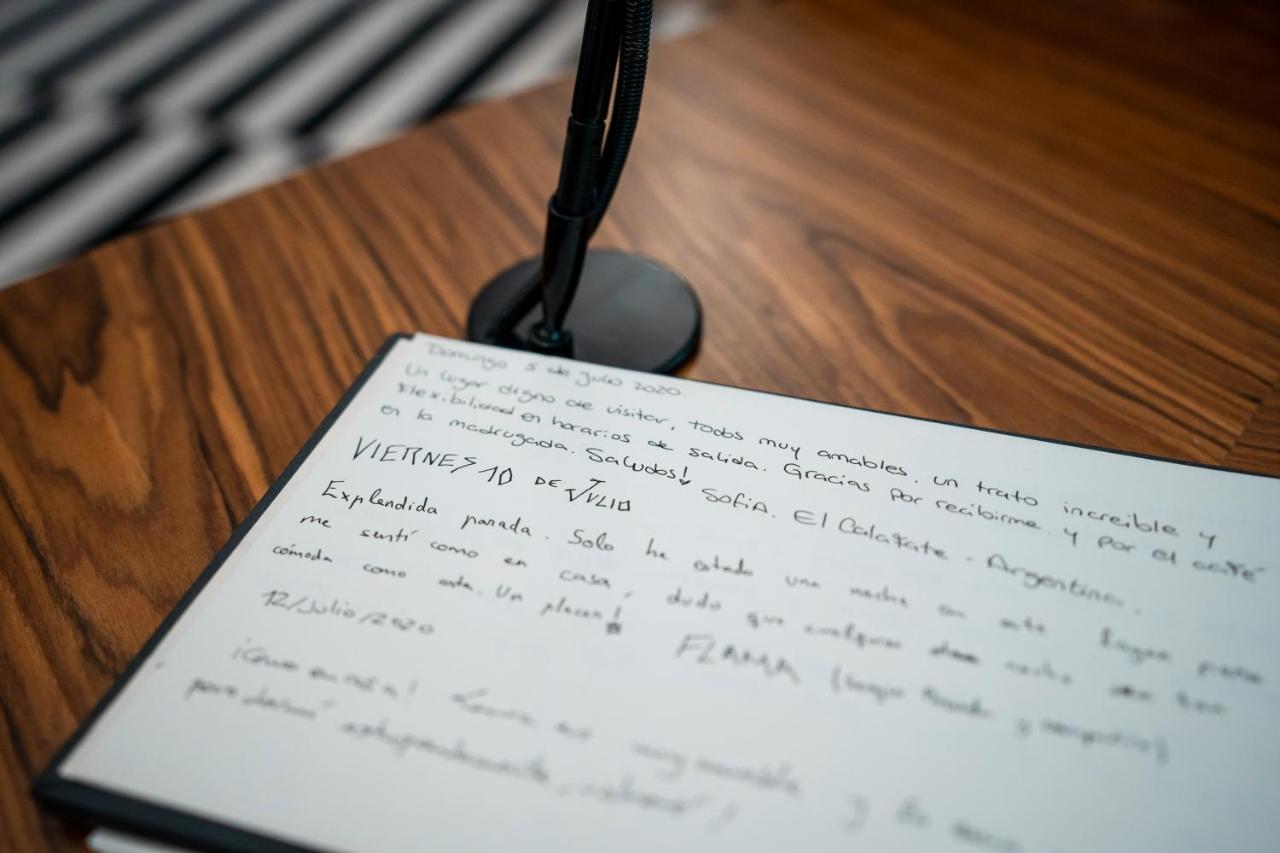 Domingo 5 de julio 2020.
Un lugar digno de visitar, todos muy amables, un trato increible y
Flexibilidad en horarios de salida. Gracias por recibirme y por el café
en la madrugada. Saludos! Sofia. El Calafate - Argentina.
VIERNES 10 DE JULIO
Explendida parada. Solo he estado una noche en este lugar pero
me sentí como en casa, dudo que cualquier otra noche sea tan
cómoda como esta. Un placer! FLAMA
12/Julio/2020
¡Como en casa! es muy amable y la
para dormir estupendamente, volveré!